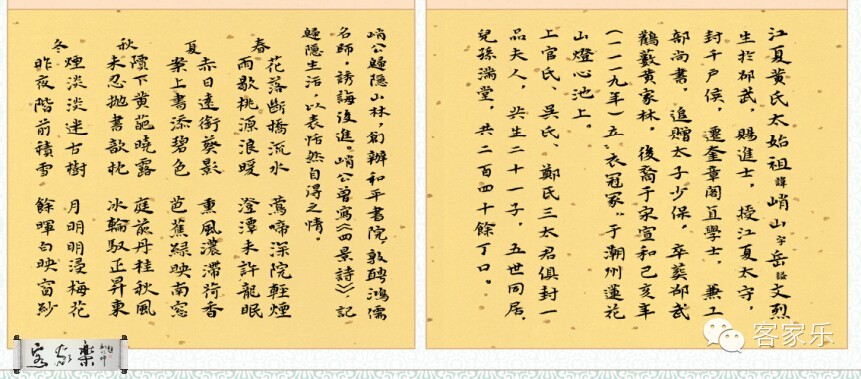 江夏黄氏太始祖諱峭山字岳謚文烈
生於邵武，賜進士，授江夏太守，
封千户侯，遷奎章閣直學士，兼工
部尚書，追贈太子少保，卒葬邵武
鸛藪黄家林，後裔于宋宣和己亥年
(一一一九年)五衣冠冢“于潮州蓮花
山燈心池上。
上官氏、吴氏、鄭氏三太君俱封一
品夫人，共生二十一子，五世同居，
兒孫满堂，共二百四十餘丁口。
峭公歸隱山林，創辦和平書院，敦聘鴻儒
名師，誘誨後進。峭公曾寫《四景詩》，記
歸隱生活，以表恬然自得之情。
春
花落斷橋流水 鶯啼深院輕煙
雨歇桃源浪暖 澄潭未許龍眠
夏
赤日遠銜葵影 熏風濃滯荷香
案上書添碧色 芭蕉緑映南窗
秋
隙下黄葩曉露 庭前丹桂秋風
未忍抛書欹枕 冰輪馭正昇東
冬
煙淡淡迷古樹 月明明浸梅花
昨夜階前積雪 餘暉白映窗紗
客家樂
客家乐